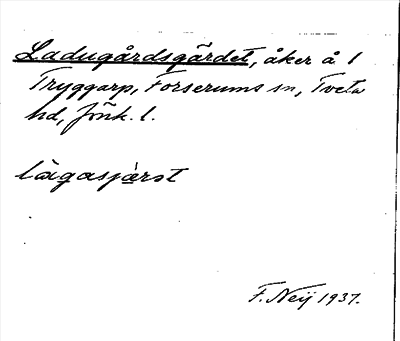 Ladugårdsgärdet, åker å 1
Tryggarp, Forserums sn, Tveta
hd, Jönk. l.
lägasjärst
F. Neij 1937.